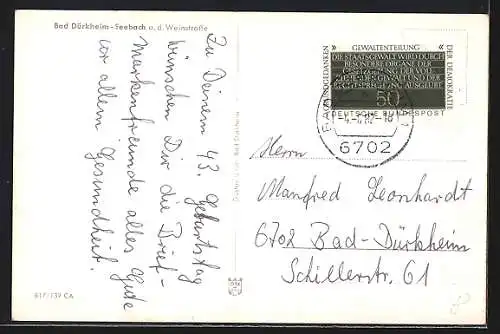 Bad Dürkheim-Seebach a. d. Weinstraße
Zu Deinem 43. Geburtstag
wünschen Dir die Brief-
markenfreunde alles Gute
vor allem Gesundheit.
817/139 CA
GRUNDGEDANKEN
» GEWALTENTEILUNG «
DER DEMOKRATIE
DIE STAATSGEWALT WIRD DURCH
BESONDERE ORGANE DER
GESETZGEBUNG DER VOLL-
ZIEHENDEN GEWALT UND DER
RECHTSPRECHUNG AUSGEÜBT
50
DEUTSCHE BUNDESPOST
6702
Herrn
Manfred Leonhardt
6702 Bad-Dürkheim
Schillerstr. 61